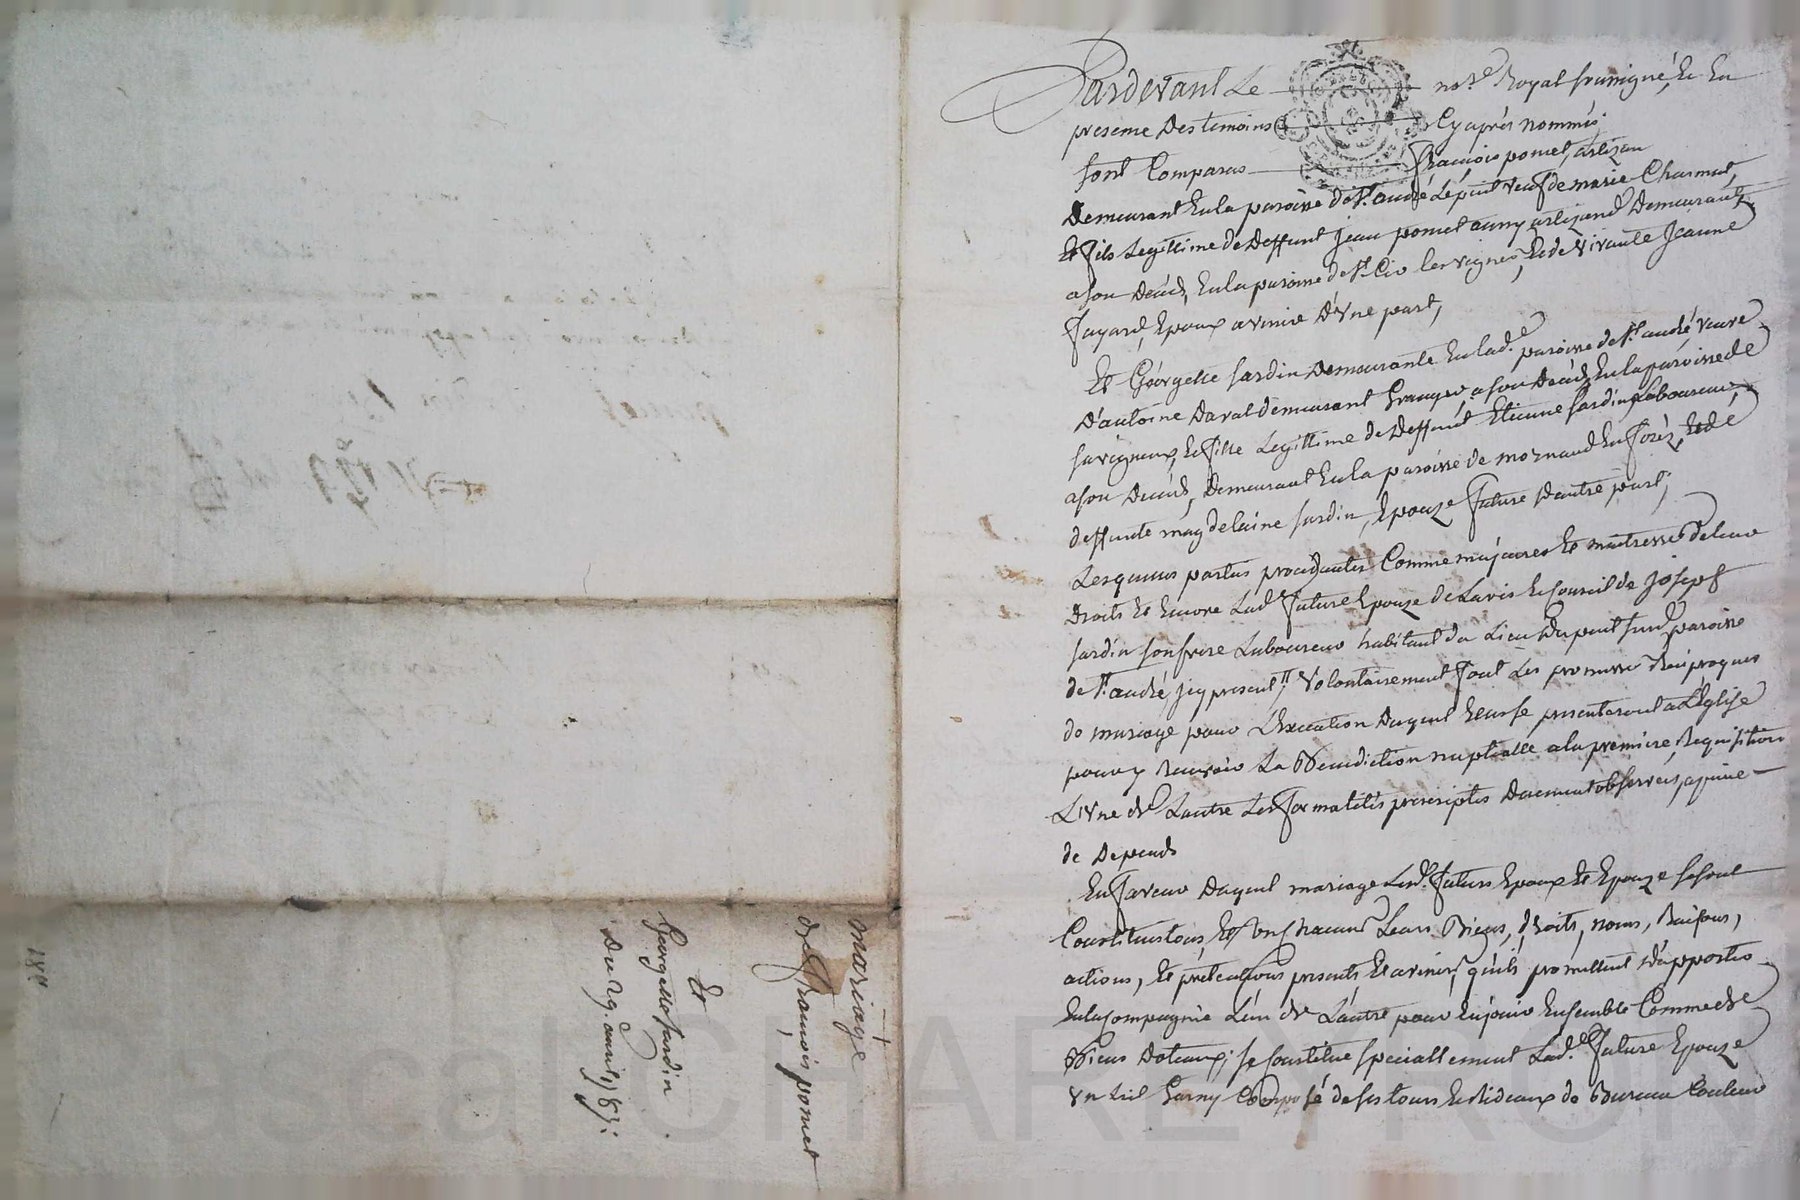 Pardevant Le no.re Royal soussigné, Et En
presence Des temoins Cy après nommés
sont Comparus François pomet, artizan
Demeurant En la paroisse de St. andré Lepuit veuf de marie Charmet,
Et fils Legittime de Deffunt Jean pomet aussy artizand Demeurant
a son Décéd, En la paroisse de St. Cir les vignes, Et de vivante Jeanne
fayard, Epoux avenir D'vne part,
Et Géorgette jardin Demeurante En lad.e paroisse de St. andré, veuve
D'antoine Daval demeurant Granger a son Décéd En la paroisse de
savigneux, Et fille Legittime de Deffunt Etienne jardin Laboureur,
a son Décéd, Demeurant En la paroisse de mornand En forèz, Et de
deffunte magdelaine jardin, Epouze future D'autre part;
Lesquelles parties procédantes Comme majeures Et maitresses de leurs
Droits Et Encore Lad. future Epouze de Lavis Et Conseil de Joseph
jardin son frère Laboureur habitant du Lieu Dupont susd. paroisse
de St. andré jcy present, volontairement font Les promesses Réciproques
de mariage pour L'Execution Duquel Elles se presenteront a L'Eglise
pour y Recevoir La Bénédiction nuptialle a la première Requisition
L'vne de Lautre Les formalités prescriptes Duement observées, a peine
de Depends
En faveur Duquel mariage Lesd. futurs Epoux Et Epouze se sont
Constitués tous Et Vn Chacuns Leurs Biens, droits, noms, Raisons,
actions, Et prétentions presents Et avenir, qu'ils promettent D'apporter
En la Compagnie L'un de L'autre pour En jouir Ensemble Comme de
Biens Dotaux; se Constitue speciallement Lad.e future Epouze
vn Lit Garny Composé de ses tours Et Rideaux de Bureau Couleur
mariage
de François pomet
Et
Georgette jardin
Du 29. avril 1787.
Pascal CHAREYRON